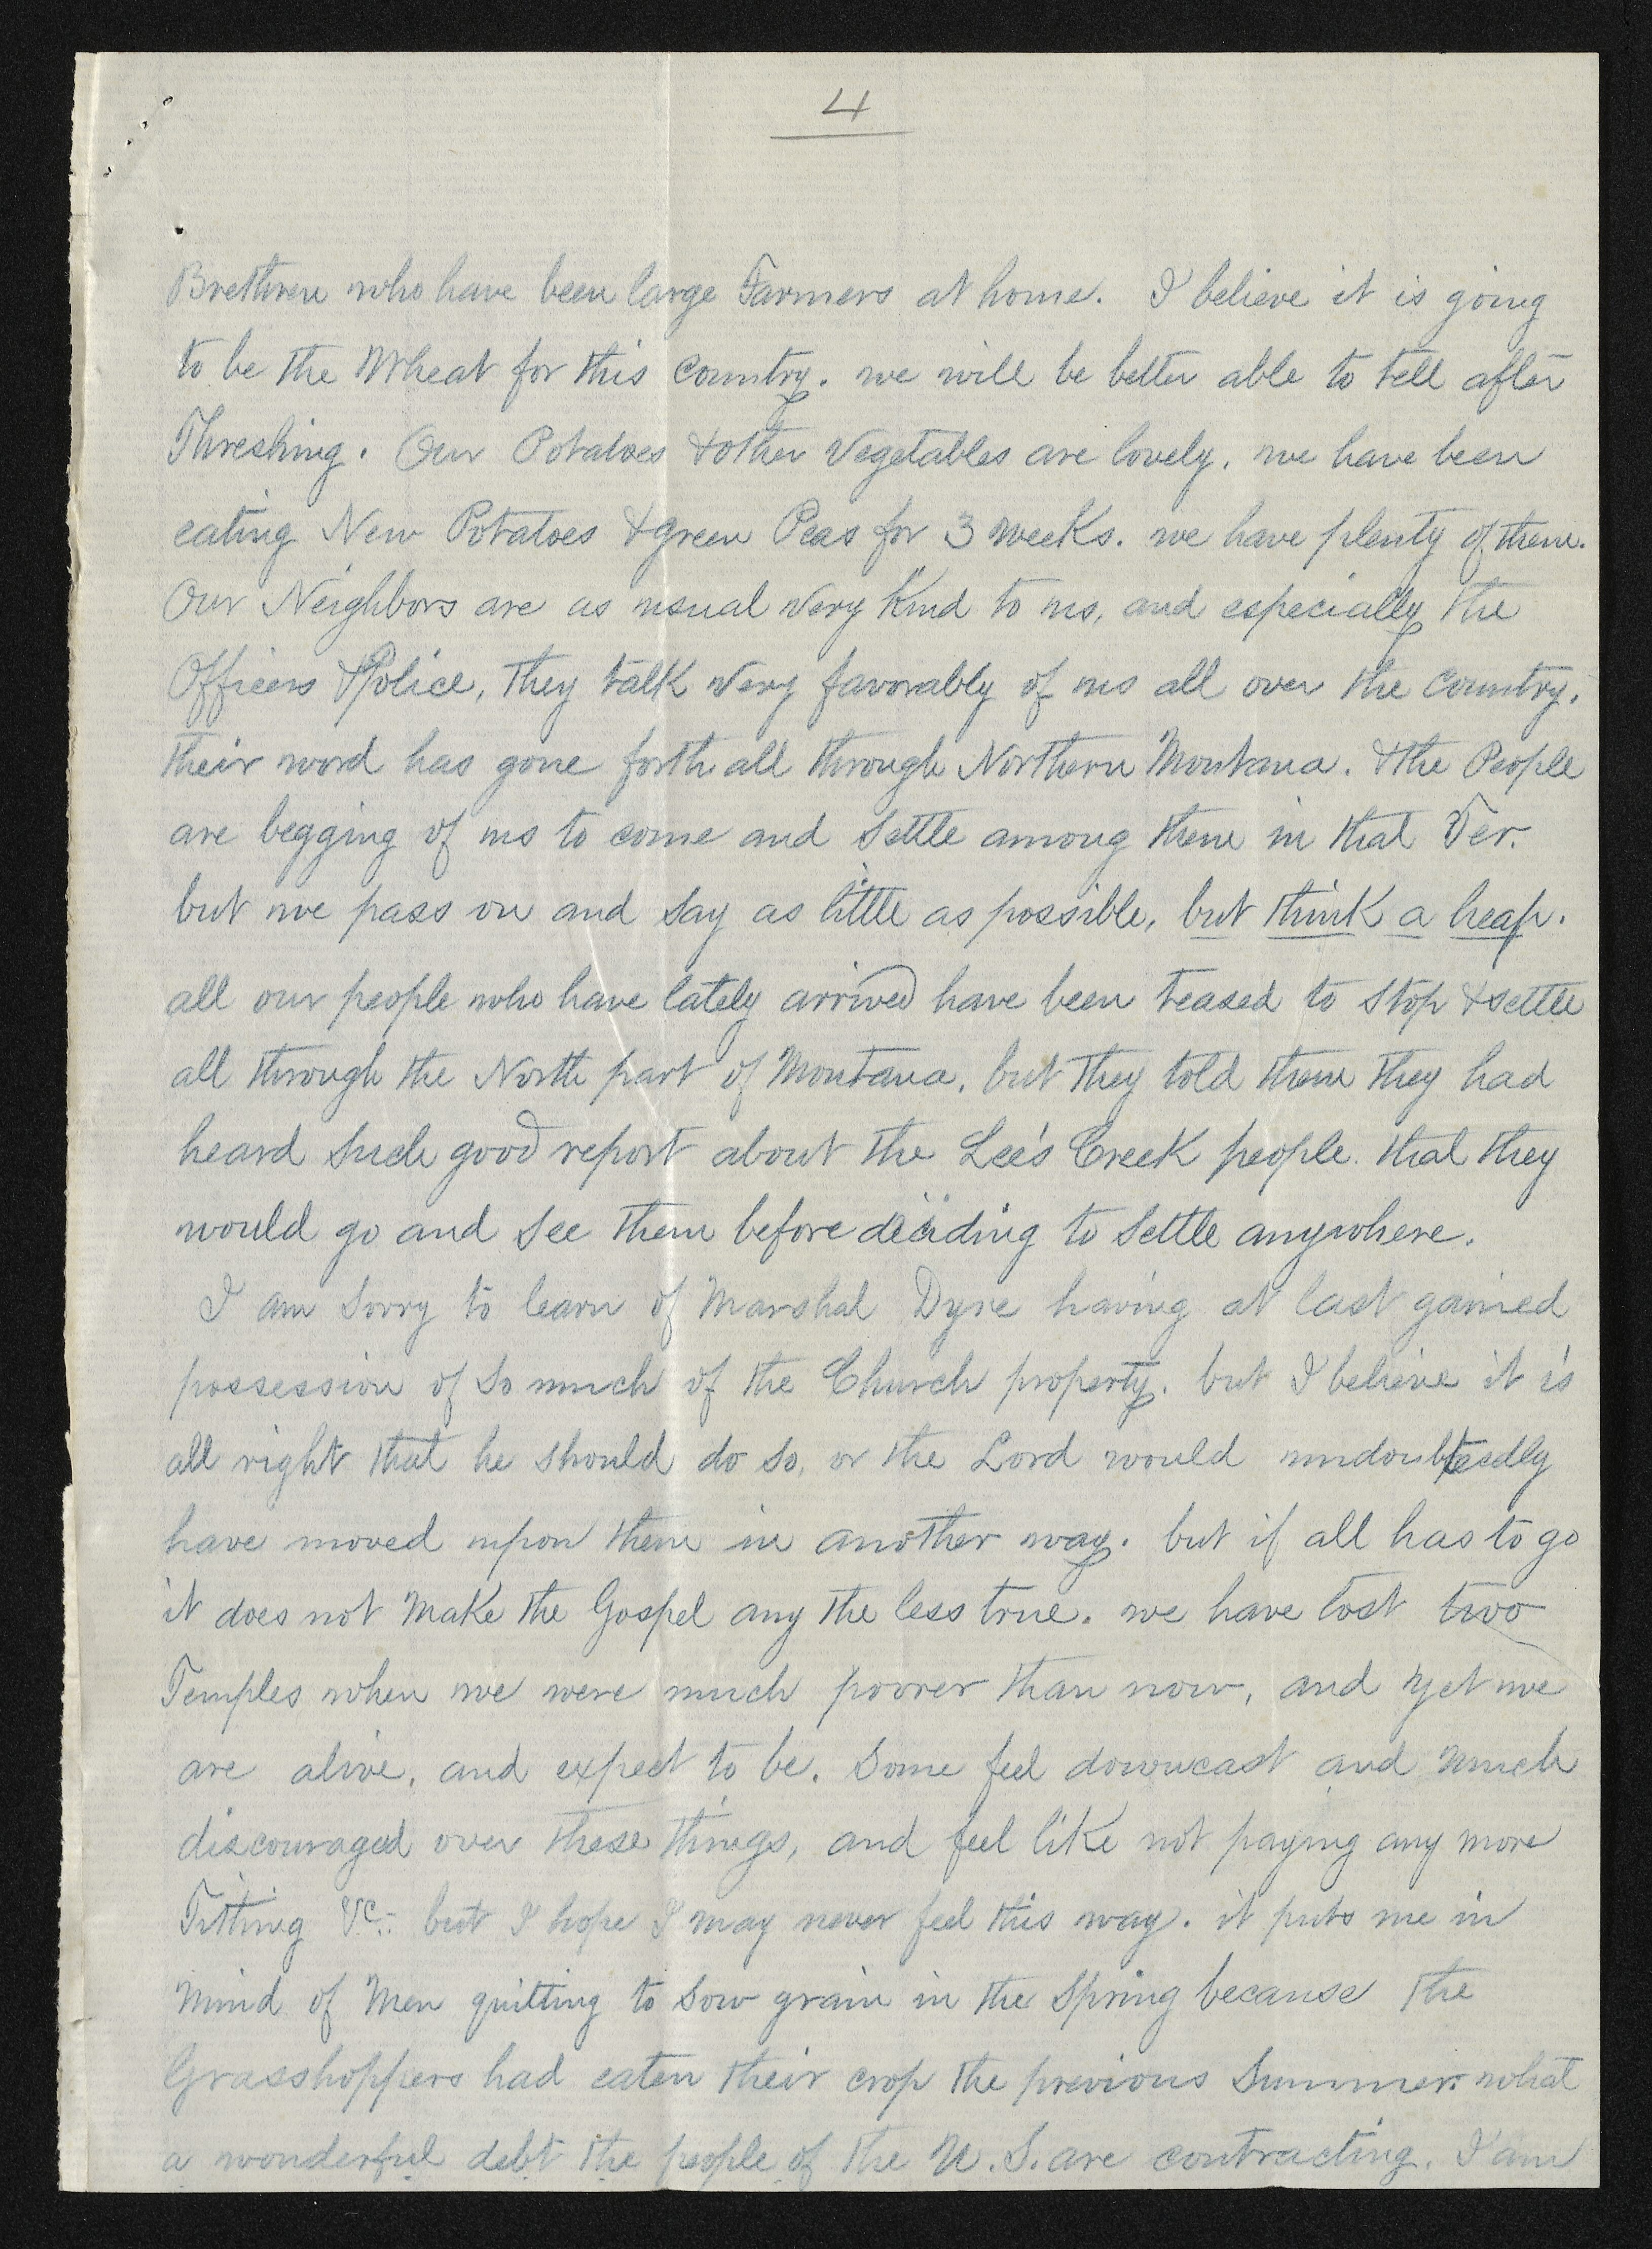 4
Brethren who have been large Farmers at home. I believe it is going
to be the Wheat for this country. we will be better able to tell after
Threshing. Our Potatoes & other Vegetables are lovely. we have been
eating New Potatoes & green Peas for 3 weeks. we have plenty of them.
Our Neighbors are as usual very Kind to us, and especially the
Officers & Police, they talk very favorably of us all over the country.
their word has gone forth all through Northern Montana. & the People
are begging of us to come and settle among them in that Ter.
but we pass on and say as little as possible, but think a heap.
all our people who have lately arrived have been teased to stop & settle
all through the North part of Montana, but they told them they had
heard such good report about the Lee's Creek people. that they
would go and see them before deciding to settle anywhere.
I am sorry to learn of Marshal Dyre having at last gained
possession of so much of the Church property. but I believe it is
all right that he should do so, or the Lord would undoubtedly
have moved upon them in another way. but if all has to go
it does not make the Gospel any the less true. we have lost two
Temples when we were much poorer than now, and yet we
are alive, and expect to be. Some feel downcast and much
discouraged over these things, and feel like not paying any more
Tithing &c. but I hope I may never feel this way. it puts me in
mind of Men quitting to sow grain in the Spring because the
Grasshoppers had eaten their crop the previous Summer. what
a wonderful debt the people of the U.S. are contracting. I am